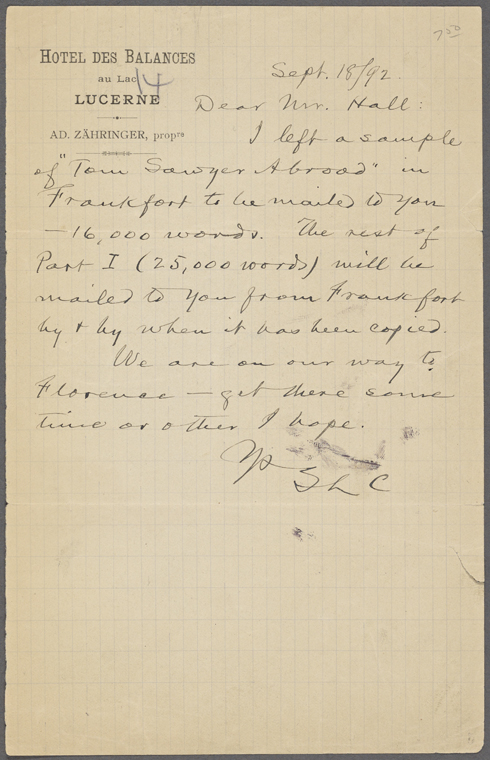 7.50
HOTEL DES BALANCES
au Lac
14
LUCERNE
AD. ZÄHRINGER, propre
Sept. 18/92.
Dear Mr. Hall:
I left a sample
of "Tom Sawyer Abroad" in
Frankfort to be mailed to you
—16,000 words. The rest of
Part I (25,000 words) will be
mailed to you from Frankfort
by & by when it has been copied.
We are on our way to
Florence — get there some
time or other I hope.
Ys
SLC